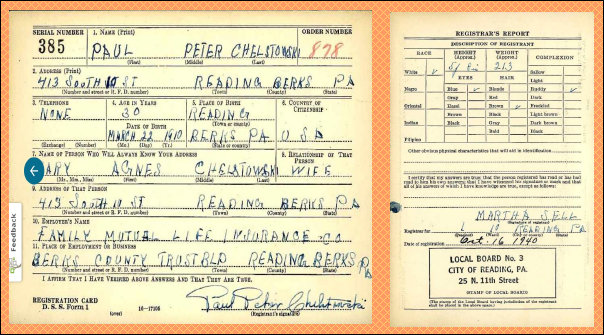 SERIAL NUMBER
1. NAME (Print)
ORDER NUMBER
385
PAUL PETER CHELSTOWSKI
878
(First) (Middle) (Last)
2. ADDRESS (Print)
413 SOUTH 10 ST READING BERKS PA
(Number and street or R. F. D. number) (Town) (County) (State)
3. TELEPHONE
4. AGE IN YEARS
5. PLACE OF BIRTH
6. COUNTRY OF CITIZENSHIP
NONE
30
READING
(Town or county)
DATE OF BIRTH
MARCH 22 1910
BERKS PA
U S A
(Exchange) (Number) (Mo.) (Day) (Yr.) (State or country)
7. NAME OF PERSON WHO WILL ALWAYS KNOW YOUR ADDRESS
8. RELATIONSHIP OF THAT PERSON
ARY AGNES CHELSTOWSKI WIFE
(Mr., Mrs., Miss) (First) (Middle) (Last)
9. ADDRESS OF THAT PERSON
413 SOUTH 10 ST READING BERKS PA
(Number and street or R. F. D. number) (Town) (County) (State)
10. EMPLOYER'S NAME
FAMILY MUTUAL LIFE INSURANCE CO.
11. PLACE OF EMPLOYMENT OR BUSINESS
BERKS COUNTY TRUST BLD READING BERKS PA
(Number and street or R. F. D. number) (Town) (County) (State)
I AFFIRM THAT I HAVE VERIFIED ABOVE ANSWERS AND THAT THEY ARE TRUE.
REGISTRATION CARD
D. S. S. Form 1
(over)
16—17105
Paul Peter Chelstowski
(Registrant's signature)
Feedback
REGISTRAR'S REPORT
DESCRIPTION OF REGISTRANT
RACE
HEIGHT (Approx.)
WEIGHT (Approx.)
COMPLEXION
213
White
Sallow
EYES
HAIR
Light
Negro
Blue
Blonde
Ruddy
Gray
Red
Dark
Oriental
Hazel
Brown
Freckled
Brown
Black
Light brown
Indian
Black
Gray
Dark brown
Bald
Black
Filipino
Other obvious physical characteristics that will aid in identification
I certify that my answers are true; that the person registered has read or has had read to him his own answers; that I have witnessed his signature or mark and that all of his answers of which I have knowledge are true, except as follows:
MARTHA SELL
Registrar for
10 READING PA
Date of registration Oct. 16 1940
LOCAL BOARD No. 3
CITY OF READING, PA.
25 N. 11th Street
(STAMP OF LOCAL BOARD)
(The stamp of the Local Board having jurisdiction of the registrant shall be placed in the above space.)